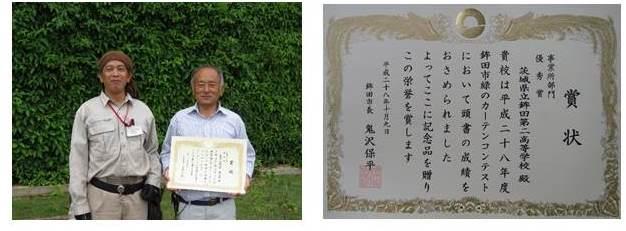 賞状
事業所部門
優秀賞
茨城県立鉾田第二高等学校 殿
貴校は平成二十八年度
鉾田市緑のカーテンコンテスト
において頭書の成績を
おさめられました
よってここに記念品を贈り
この栄誉を賞します
平成二十八年十月九日
鉾田市長 鬼沢保平
賞状